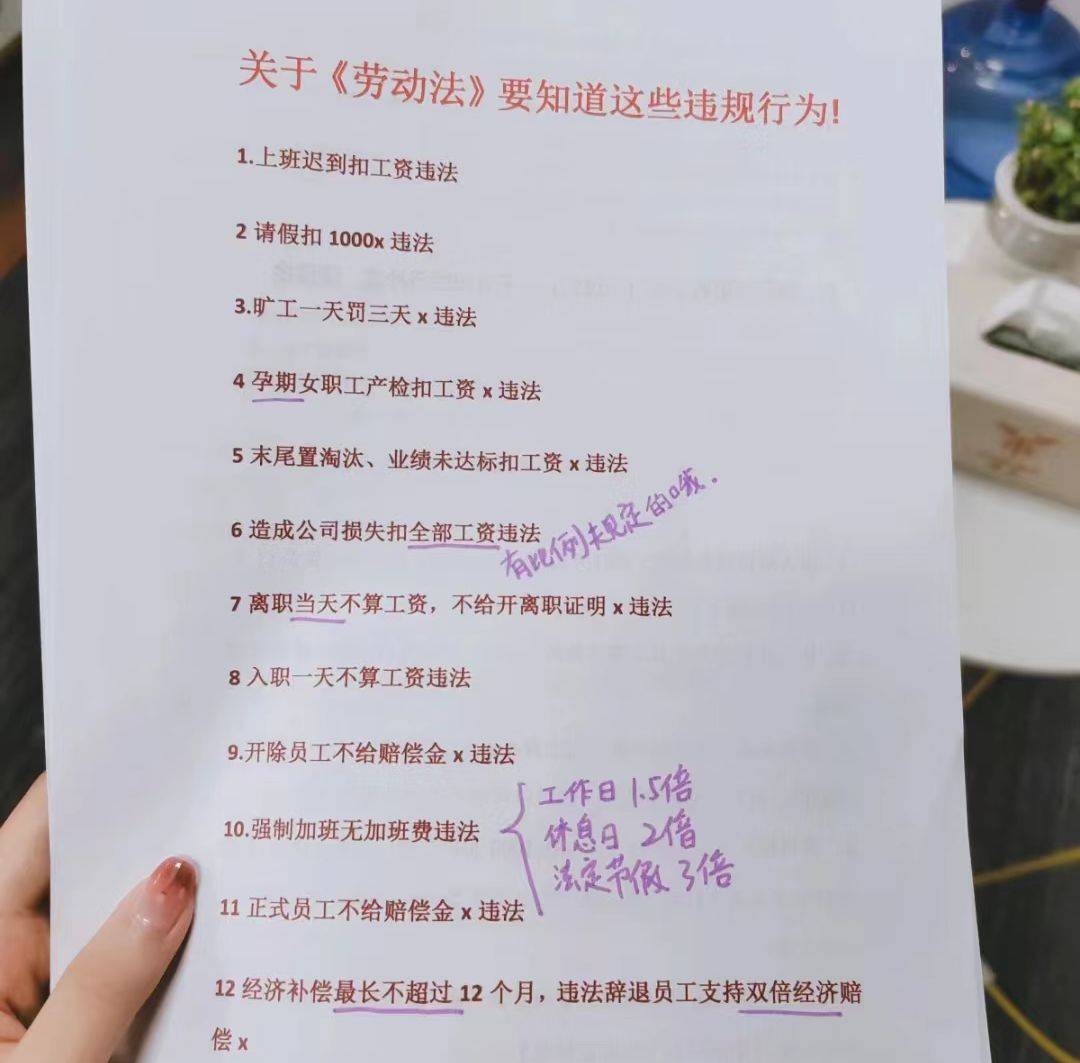 关于《劳动法》要知道这些违规行为!
1.上班迟到扣工资违法
2 请假扣 1000x 违法
3.旷工一天罚三天 x 违法
4 孕期女职工产检扣工资 x 违法
5 末尾置淘汰、业绩未达标扣工资 x 违法
6 造成公司损失扣全部工资违法
有比例规定的哦.
7 离职当天不算工资，不给开离职证明 x 违法
8 入职一天不算工资违法
9.开除员工不给赔偿金 x 违法
10.强制加班无加班费违法
工作日 1.5倍
休息日 2倍
法定节假 3倍
11 正式员工不给赔偿金 x 违法
12 经济补偿最长不超过 12 个月，违法辞退员工支持双倍经济赔
偿 x